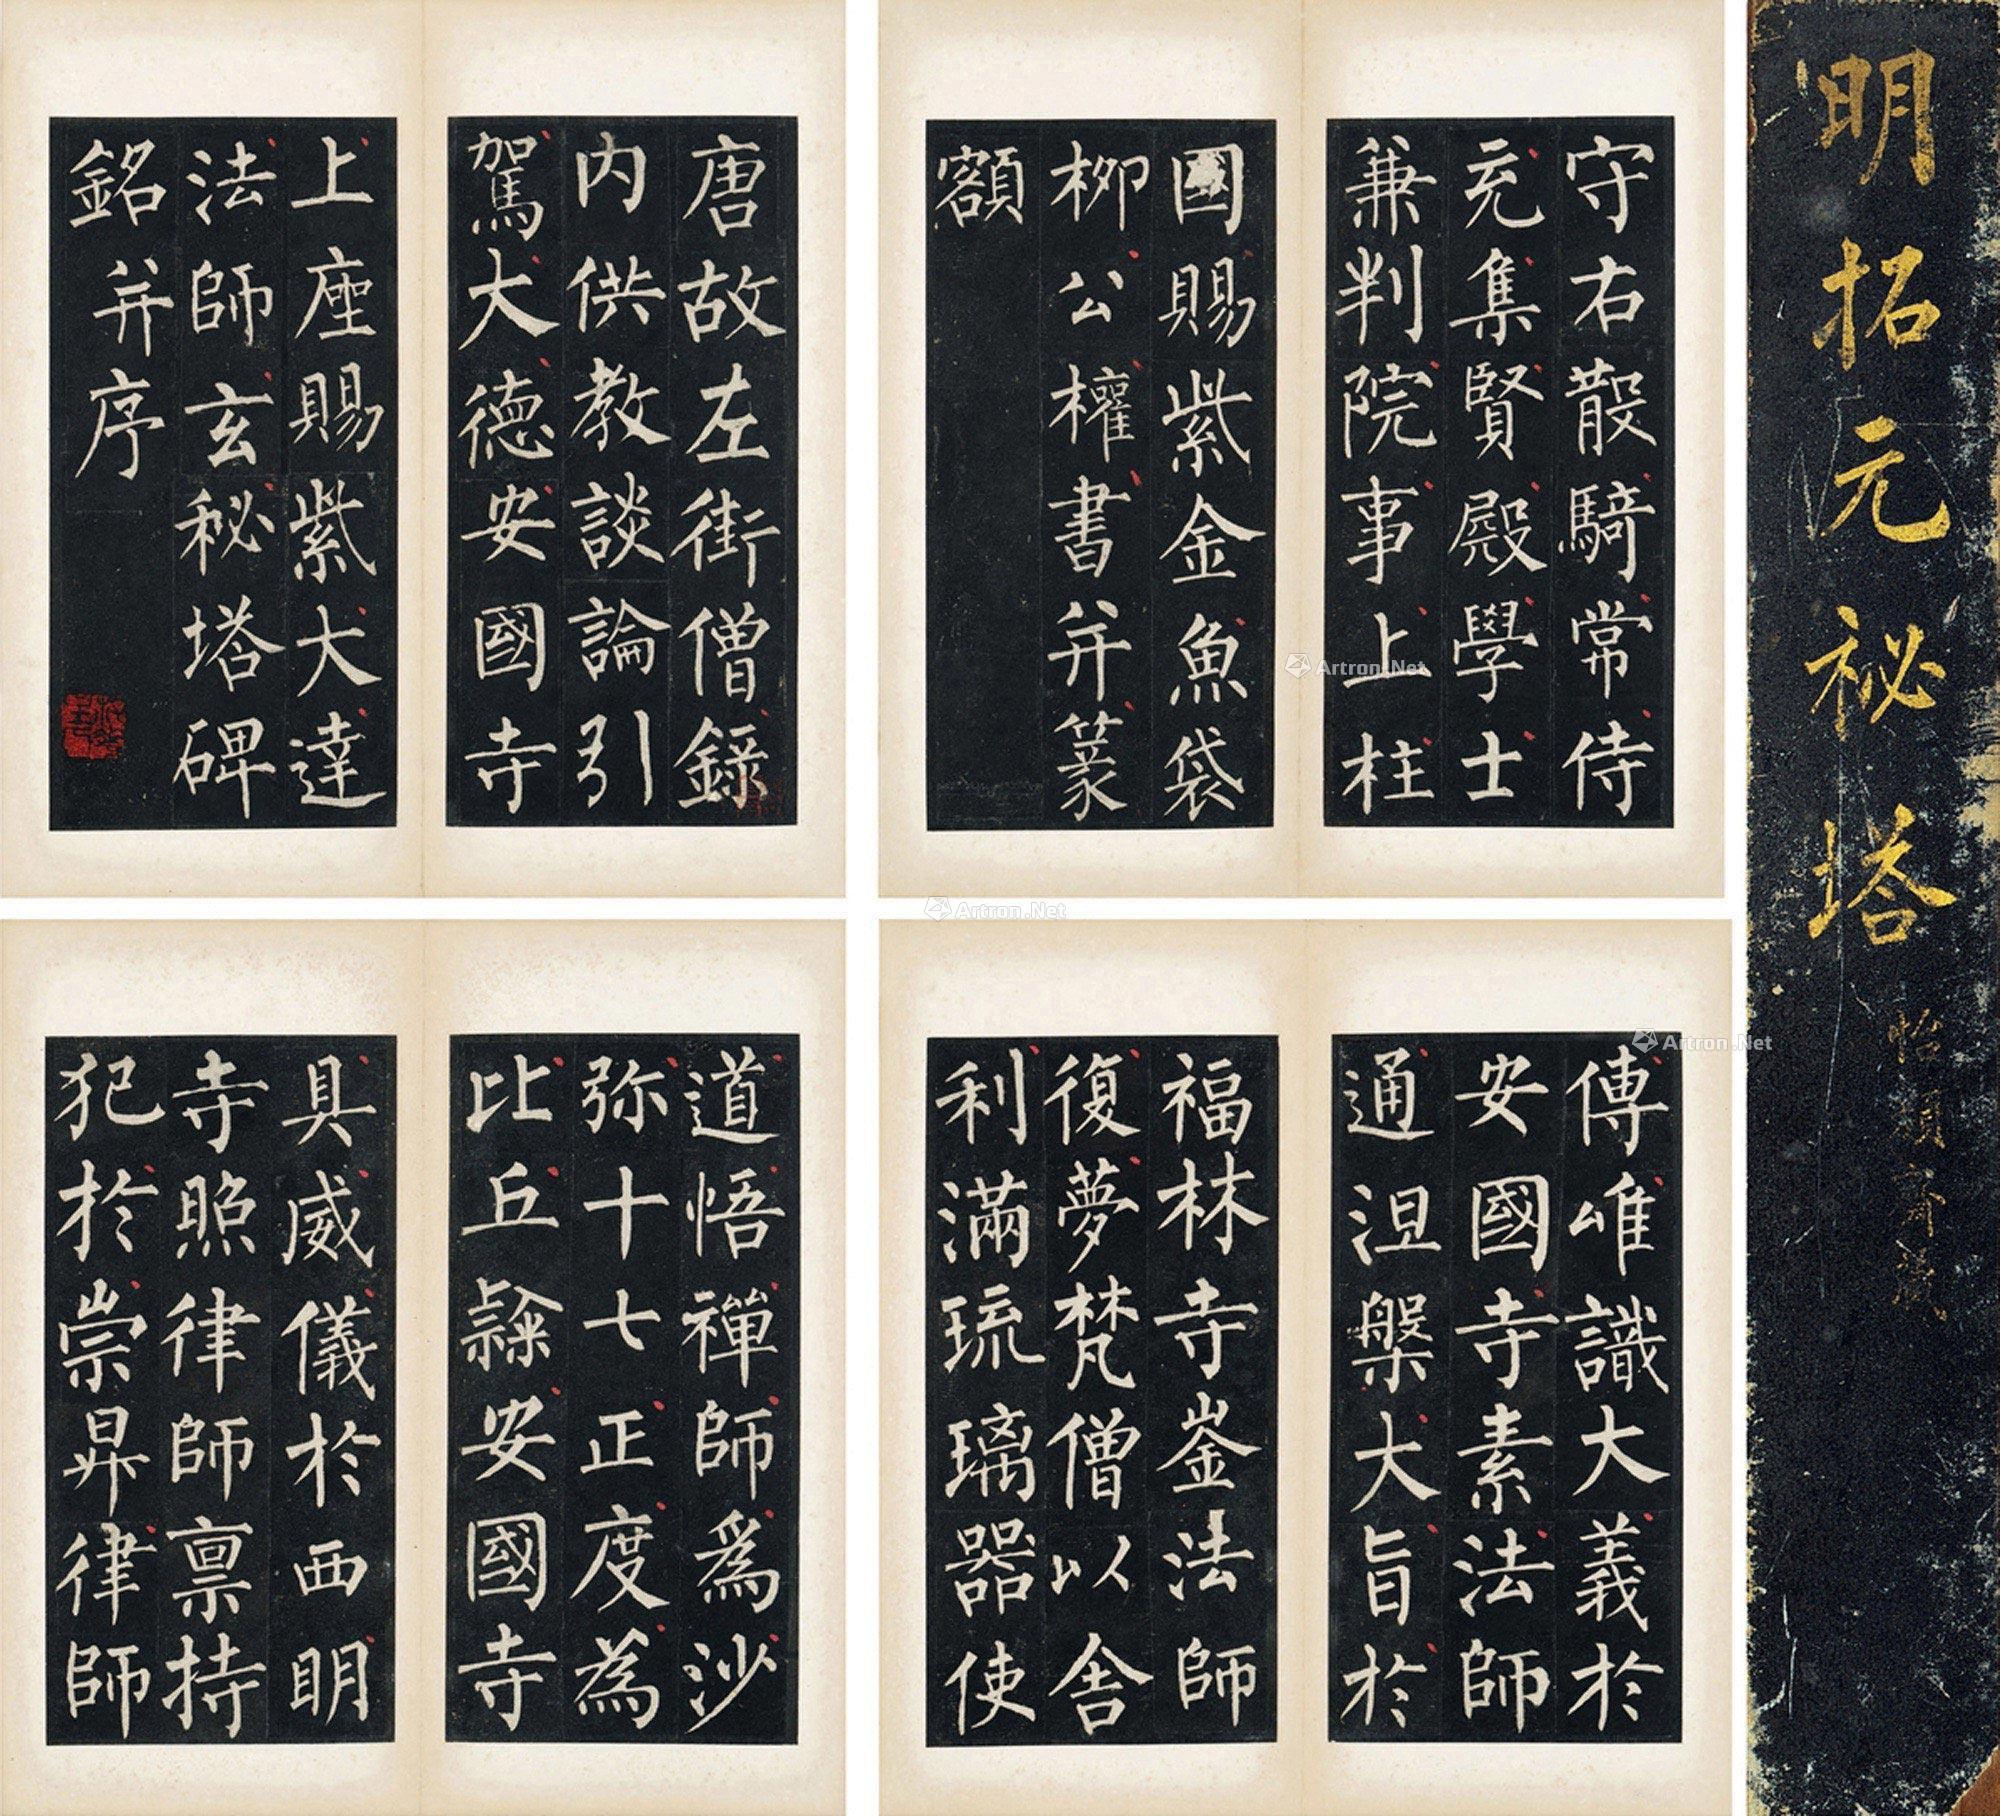 唐故左街僧錄
內供教談論引
駕大德安國寺
上座賜紫大達
法師玄秘塔碑
銘并序
守右散騎常侍
充集賢殿學士
兼判院事上柱
國賜紫金魚袋
柳公權書并篆
額
道悟禪師為沙
弥十七正度為
比丘隸安國寺
具威儀於西明
寺照律師禀持
犯於崇昇律師
傳唯識大義於
安國寺素法師
通涅槃大旨於
福林寺崟法師
復夢梵僧以舍
利滿琉璃器使
明拓元祕塔
Artron.Net
Artron.Net
Artron.Net